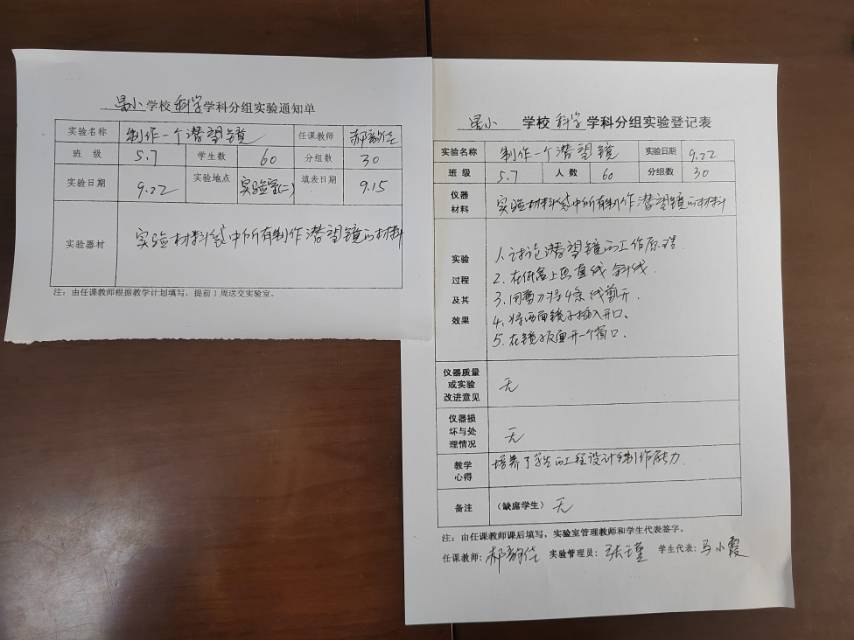 学校科学学科分组实验通知单
实验名称 制作一个潜望镜 任课教师
班 级 5.7 学生数 60 分组数 30
实验日期 9.22 实验地点 实验室(二) 填表日期 9.15
实验器材 实验材料袋中所有制作潜望镜的材料
注：由任课教师根据教学计划填写，提前1周送交实验室。
学校科学学科分组实验登记表
实验名称 制作一个潜望镜 实验日期 9.22
班 级 5.7 人 数 60 分组数 30
仪器
材料
实验材料袋中所有制作潜望镜的材料
实验
过程
及其
效果
1.讨论潜望镜的工作原理
2.在纸盒上画直线 斜线.
3.用剪刀将4条线剪开.
4.将两面镜子插入开口。
5.在镜子反面开一个窗口.
仪器质量
或实验
改进意见
无
仪器损
坏与处
理情况
无
教学
心得
培养了学生的工程设计和制作能力
备注 （缺席学生）无
注：由任课教师课后填写，实验室管理教师和学生代表签字。
任课教师： 实验管理员：张瑾 学生代表：马小霞